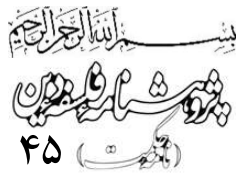 بسم الله الرحمن الرحیم
پژوهشنامه فلسفه دین
(نامه حکمت)
۴۵